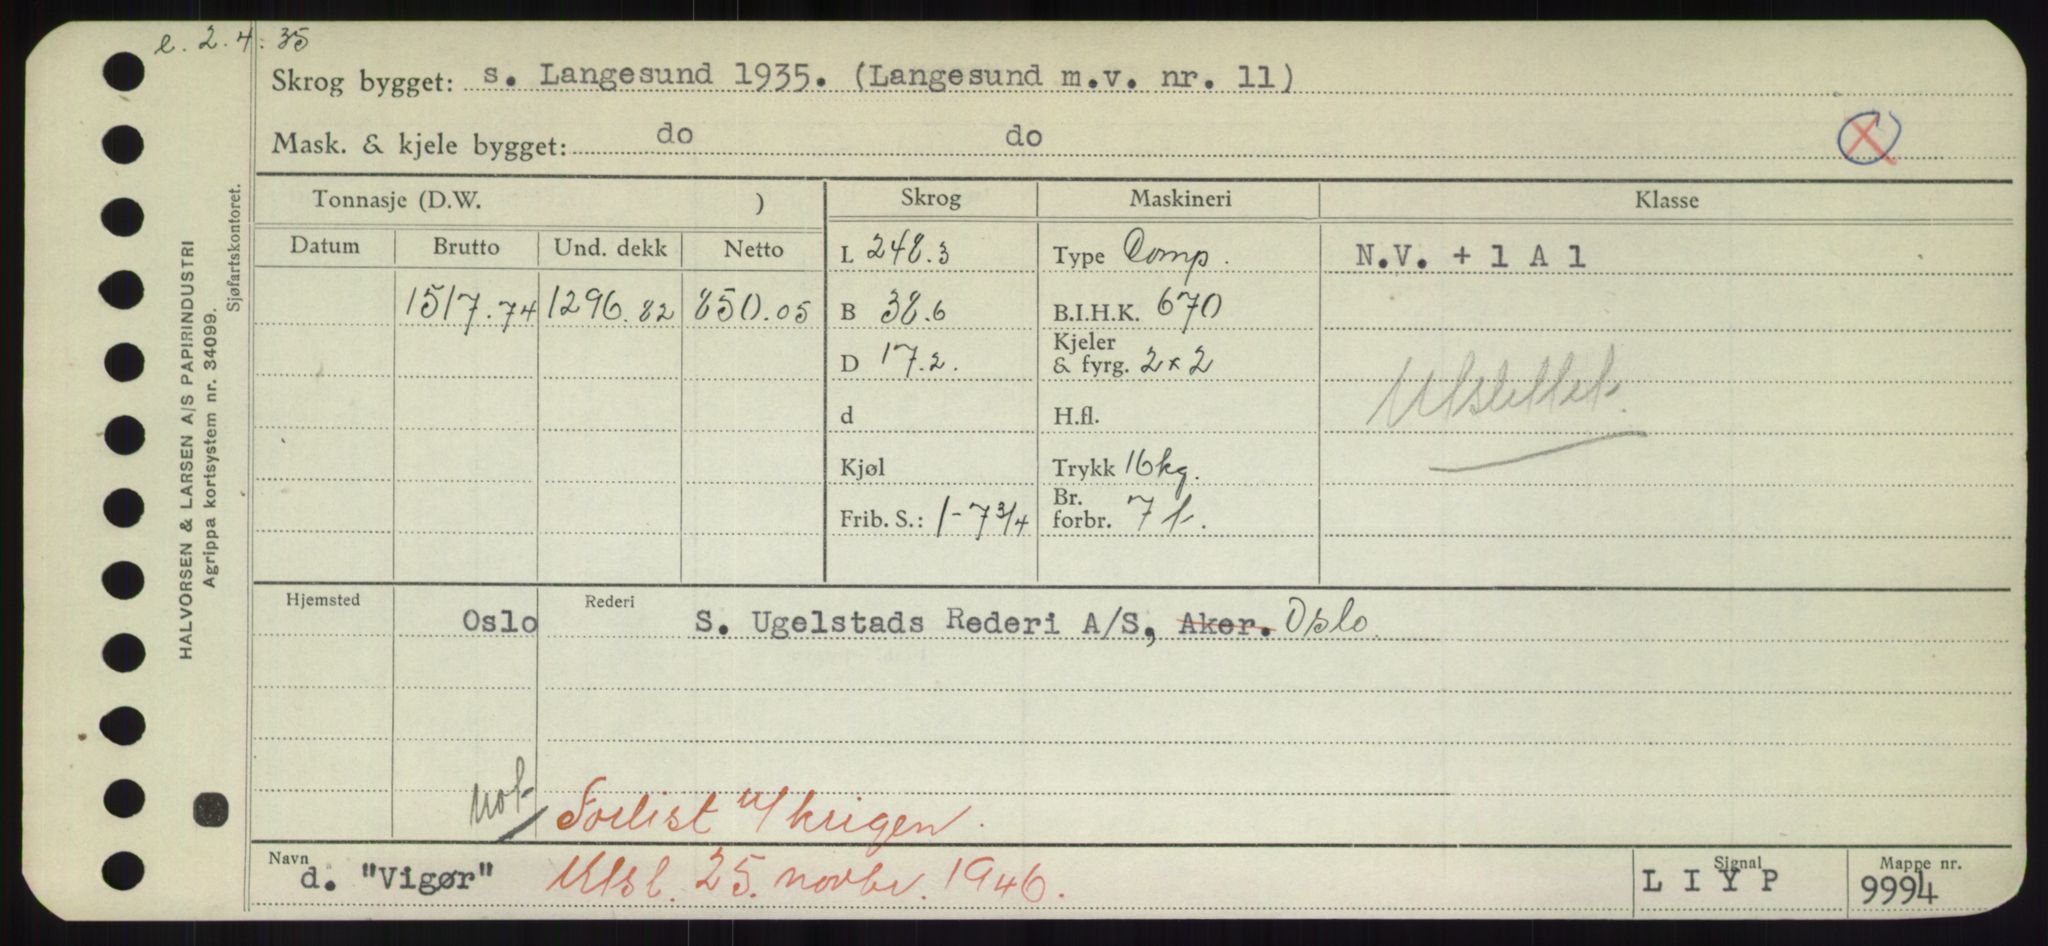 e. 2. 4. 35
Skrog bygget: s. Langesund 1935. (Langesund m.v. nr. 11)
Mask. & kjele bygget: do do
Tonnasje (D.W. ) Skrog Maskineri Klasse
Datum Brutto Und. dekk Netto L 248.3 Type Comp. N.V. + 1 A 1
1517.74 1296.82 850.05 B 38.6 B.I.H.K. 670
D 17.2. Kjeler & fyrg. 2 x 2
Utslettet.
d H.fl.
Kjøl Trykk 16 kg.
Frib. S.: 1 - 7 3/4 Br. forbr. 7 t.
Hjemsted Oslo Rederi S. Ugelstads Rederi A/S, Aker. Oslo.
Not Forlist u/krigen.
Navn d. "Vigør" Utsl. 25. novbr. 1946. Signal L I Y P Mappe nr. 9994
HALVORSEN & LARSEN A/S PAPIRINDUSTRI
Agrippa kortsystem nr. 34099.
Sjøfartskontoret.